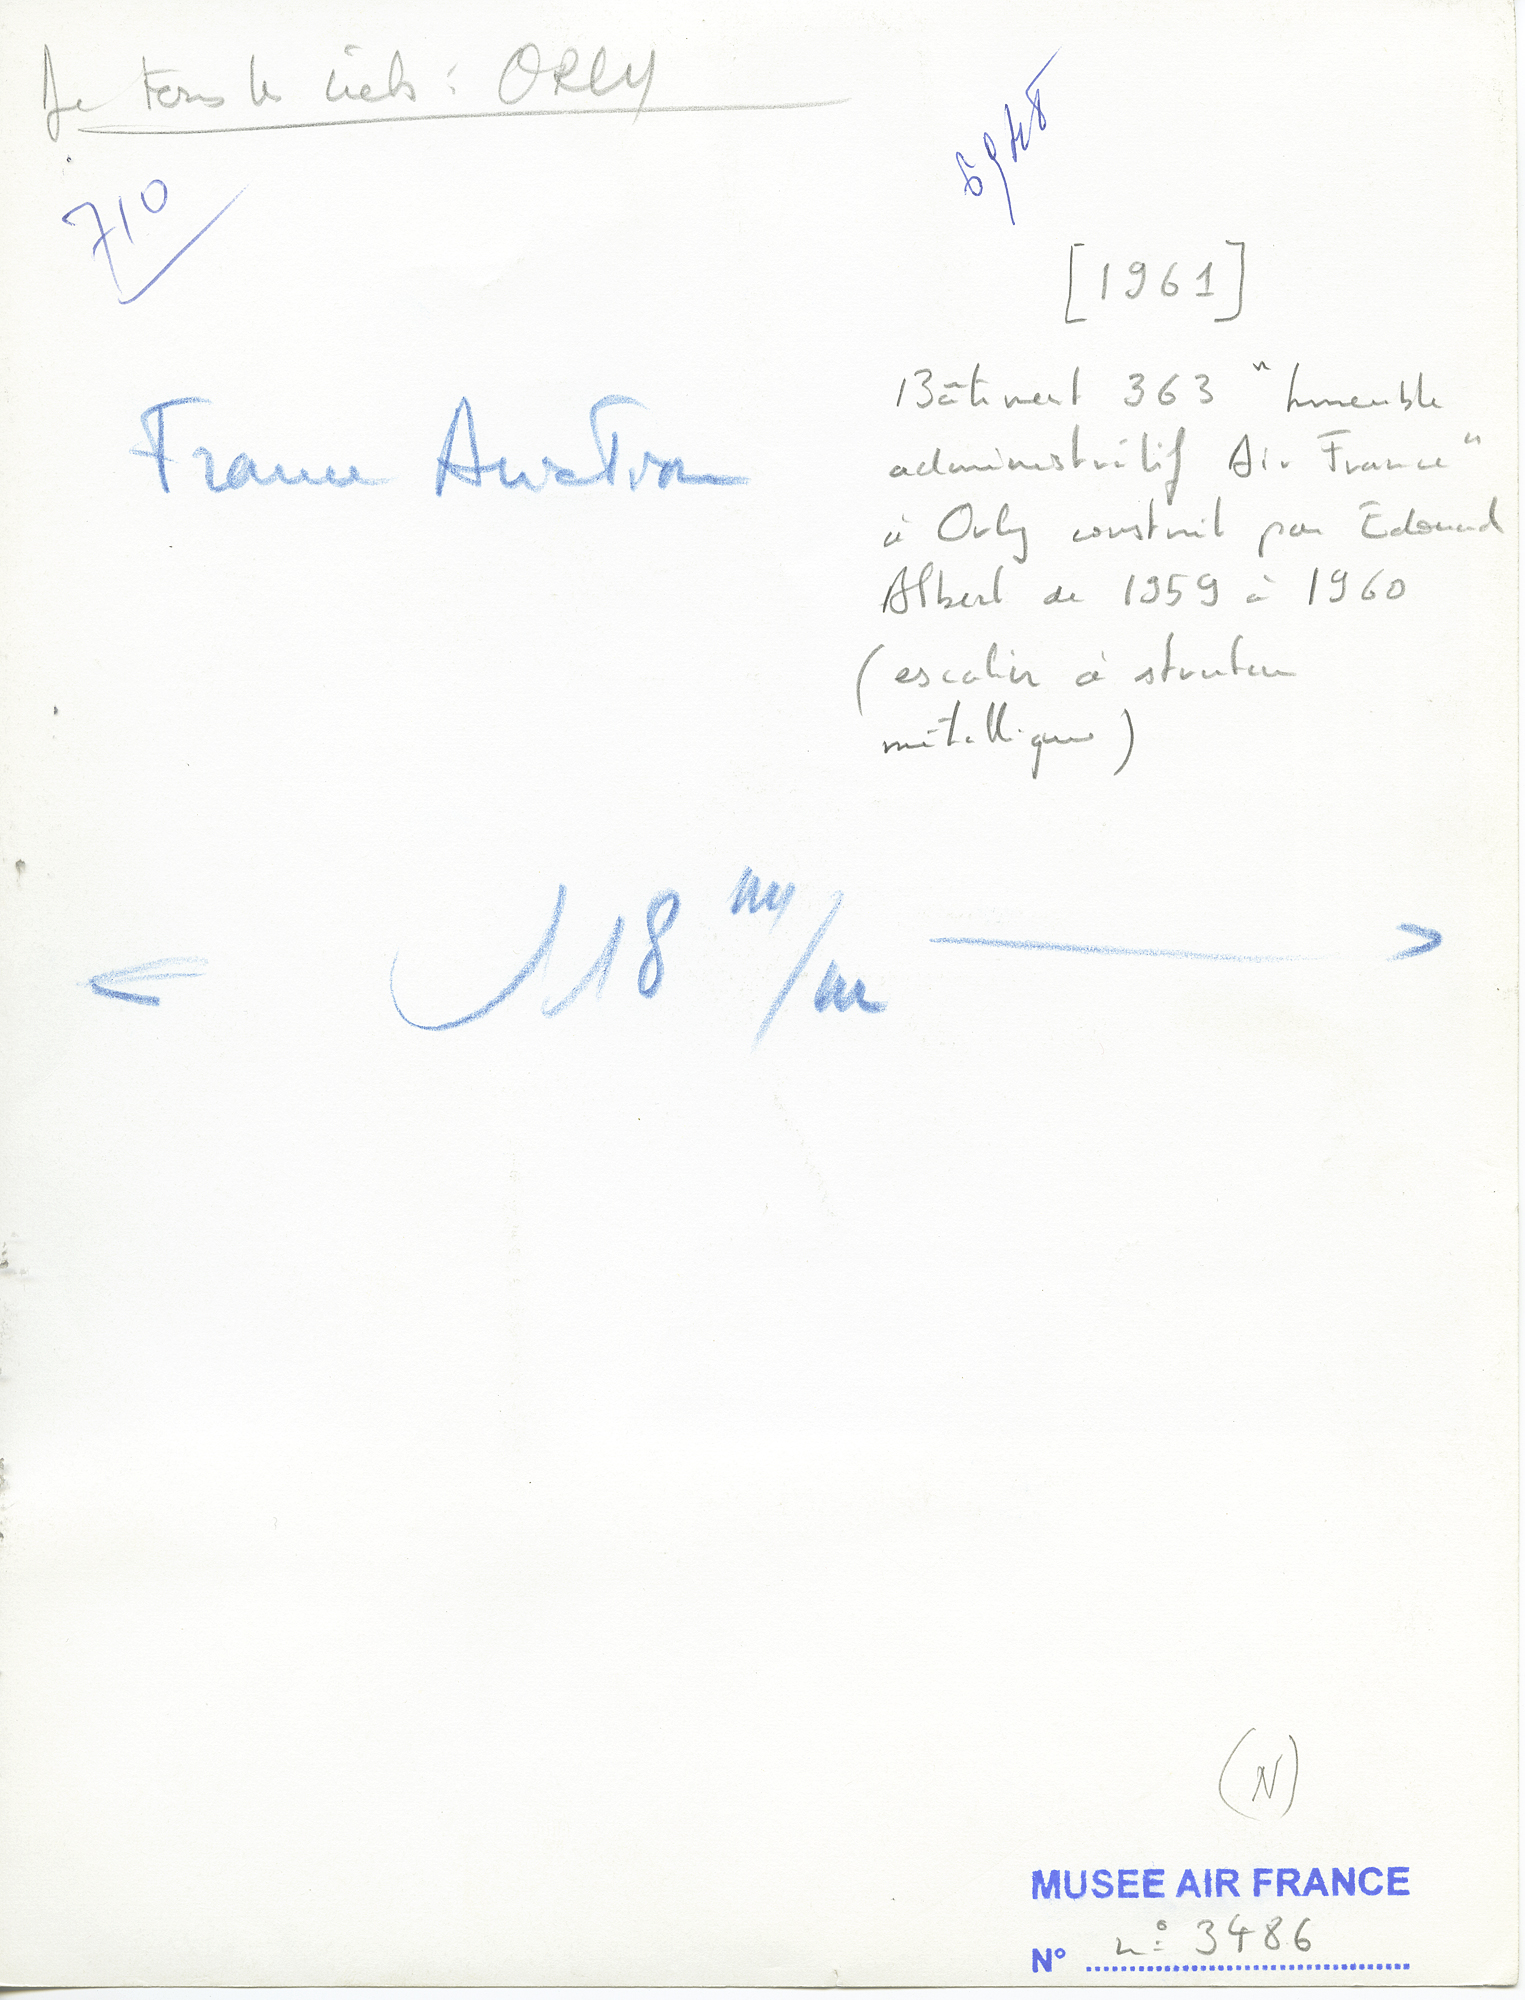 De tous les ciels : ORLY
710
[1961]
France Aviation
Bâtiment 363 "Immeuble
administratif Air France"
à Orly construit par Édouard
Albert de 1959 à 1960
(escalier à structure
métallique)
118 m/m
(N)
MUSEE AIR FRANCE
N° n° 3486